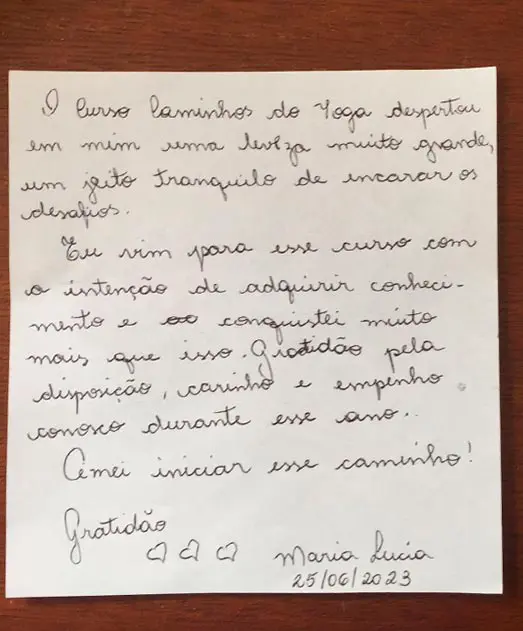 O Curso Caminhos do Yoga despertou
em mim uma leveza muito grande,
um jeito tranquilo de encarar os
desafios.
Eu vim para esse curso com
a intenção de adquirir conheci-
mento e conquistei muito
mais que isso. Gratidão pela
disposição, carinho e empenho
conosco durante esse ano..
Amei iniciar esse caminho!
Gratidão
♡ ♡ ♡ Maria Lucia
25/06/2023